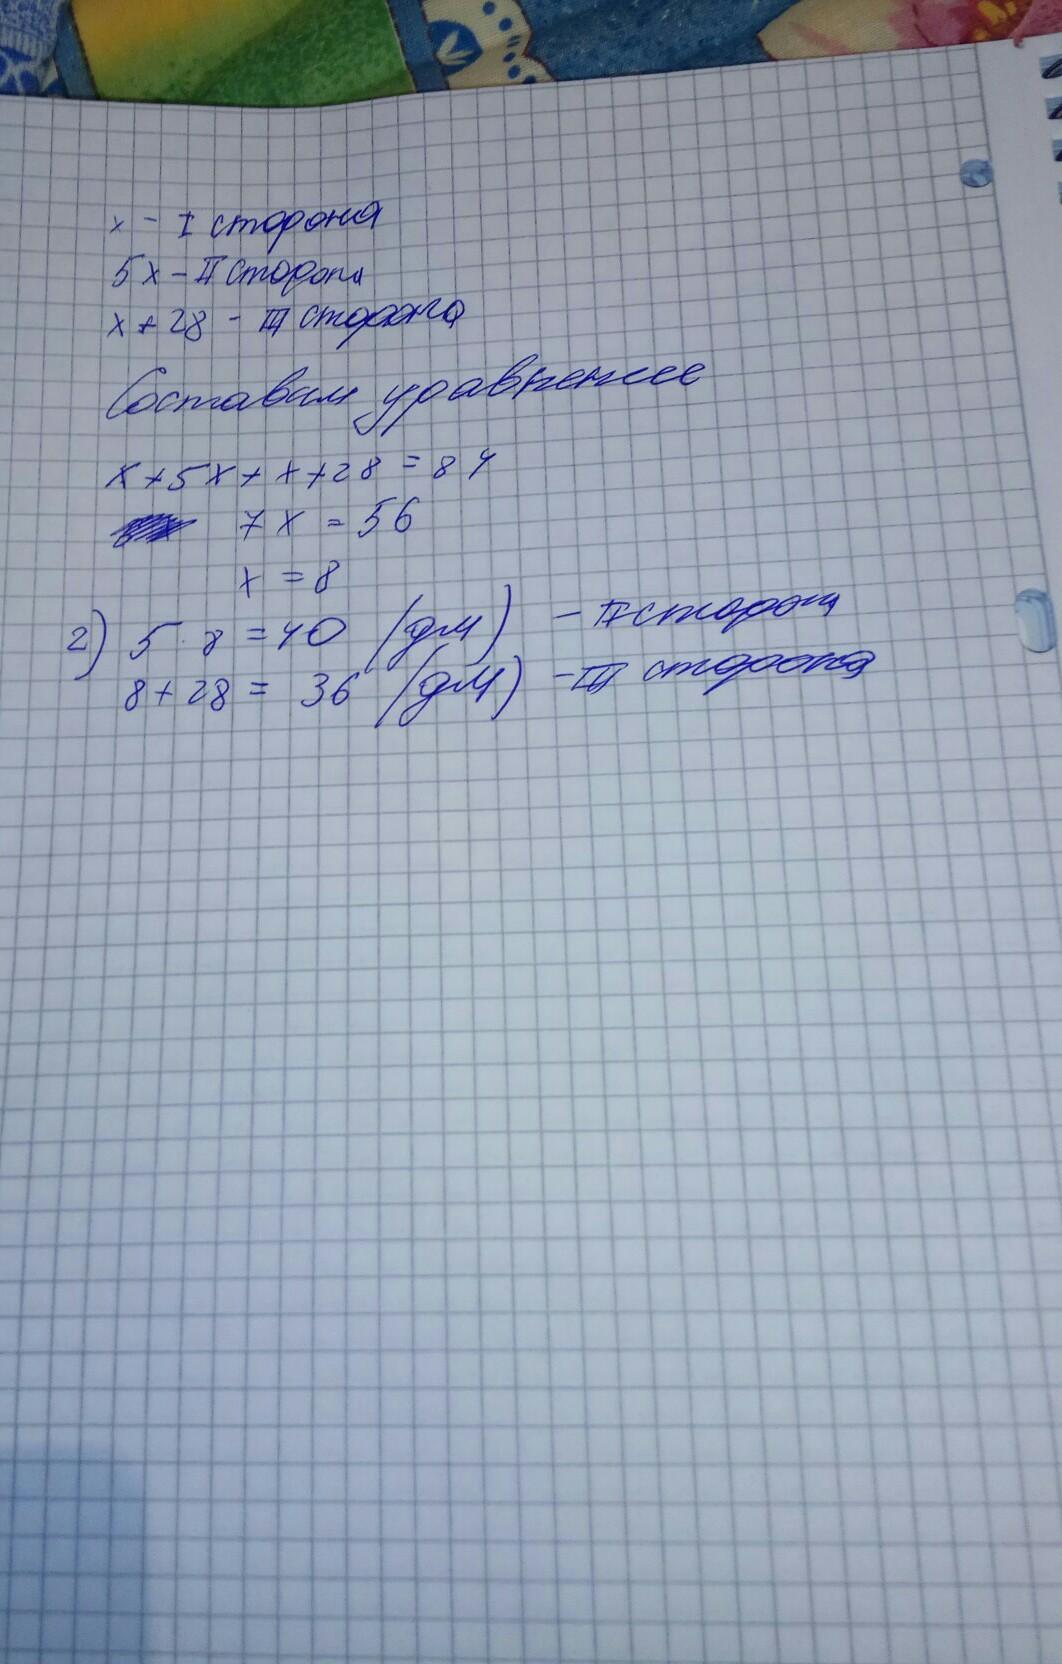 x - I сторона
5x - II сторона
x + 28 - III сторона
Составим уравнение
x + 5x + x + 28 = 84
7x = 56
x = 8
2) 5 · 8 = 40 (дм) - II сторона
8 + 28 = 36 (дм) - III сторона